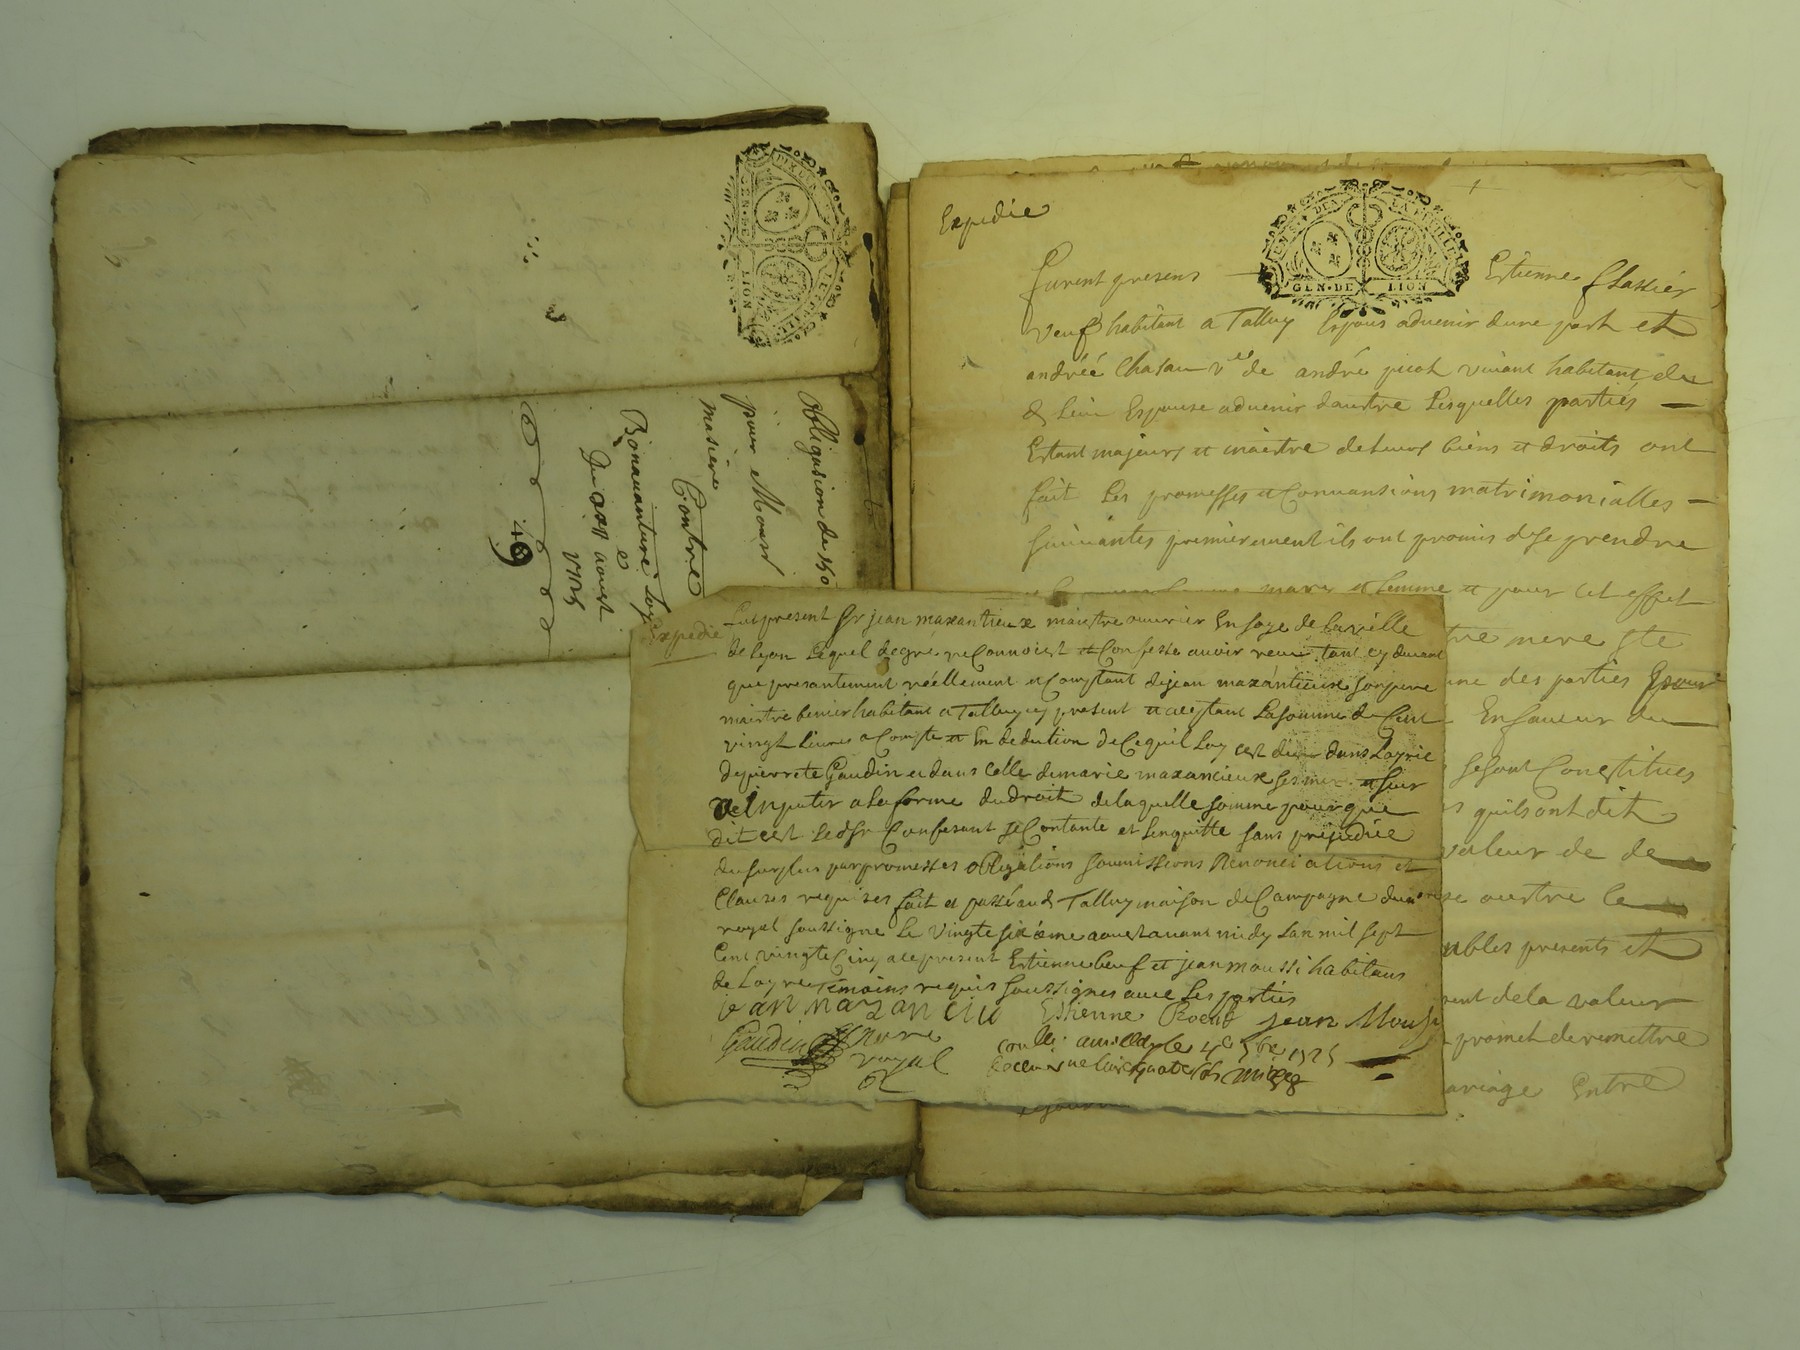 GEN · DE LION
Obligasion de 150
pour Mousr
masiere
Contre
Bonauanture Loy
Du xxII aoust
1725
49
Expedie
GEN · DE LION
furent presens Estienne
veuf habitant a Talluy Espoux aduenir dune part et
andréé Chasau vve de andré picot viuant habitant du
d lieu Espouse aduenir dautre Lesquelles partiés
Estant majeurs et maistre de Leurs biens et droits ont
fait Les promesses et Conuansions matrimonialles
suiuantes premierement ils ont promis de se prendre
mary et femme et pour cet effet
tre mere Ste
une des parties pour
En faueur du
se sont Constitues
quils ont dit
valeur de de
outre le
ubles presents et
ent dela valeur
promet de remettre
ariage Entre
Expedie
Fut present Sr jean mazantieux maistre ouurier En soye de la ville
de Lyon Lequel de gré reConnoist et Confesse auoir receu tant cy deuant
que presantement réellement et Comptant de jean mazantieux son pere
maistre habitant a Talluy cy present et aceptant La somme de Cent
vingt Liures a Compte et En deduction de Ce quil Luy est deu dans
de pierrete Gaudin et dans Celle de marie mazancieux ses mere et seur
a Inputer a la forme du droit de laquelle somme pour que
dit est Le dt Sr Confesant se Contante et Lenquitte sans prejudice
du surplus par promesses obligations soumissions Renonciations et
Clauses requises fait et passé aud Talluy maison de Campagne du nore
royal soussigne Le vingte sixieme aoust auant midy Lan mil sept
Cent vingte Cinq a ce present Estienne beuf et jean moussi habitans
de temoins requis soussignes auec Les parties
jean mazanciu Estienne Boeuf jean Mous
Gaudin Nore
royal
1725